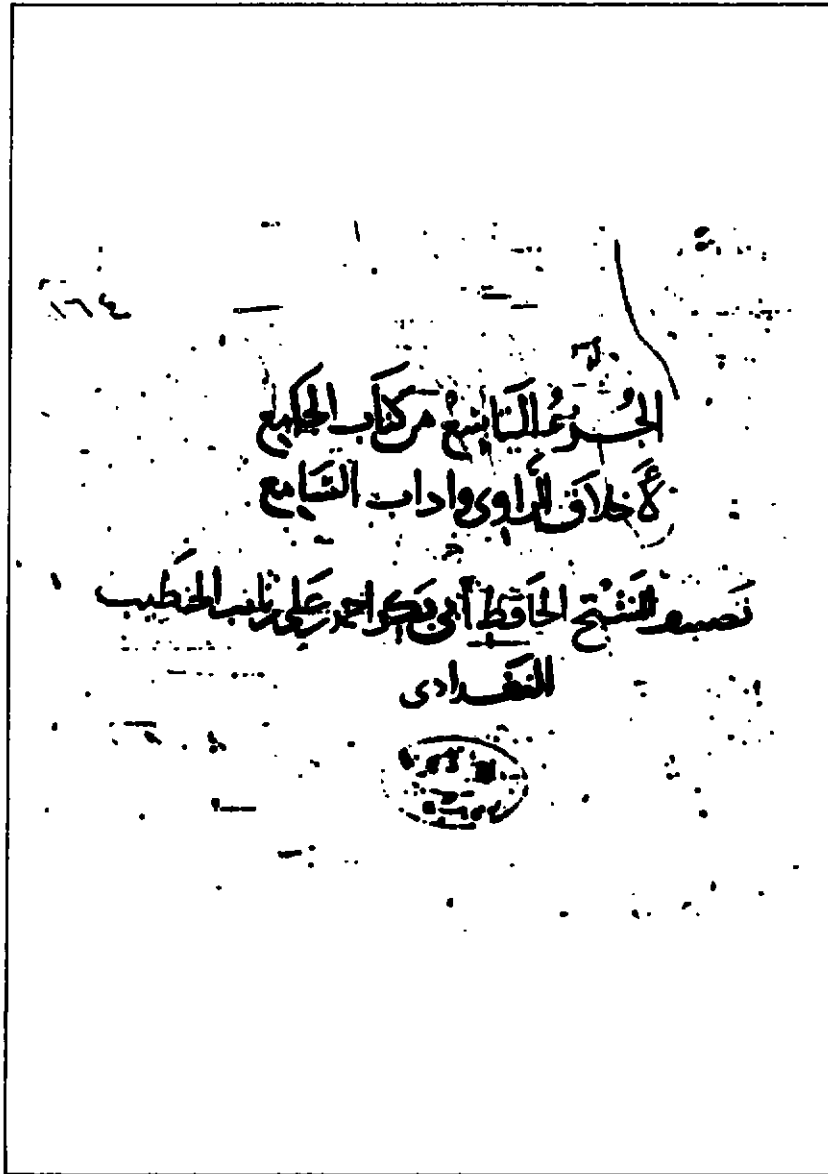 ١٦٤
الجُزءُ التاسِعُ مِن كتاب الجَامِع
لأخلاق الرَّاوى واداب السَّامِع
تصنيف الشيخ الحافظ أبي بكر احمد بن علي بن ثابت الخَطيب
البغدادى